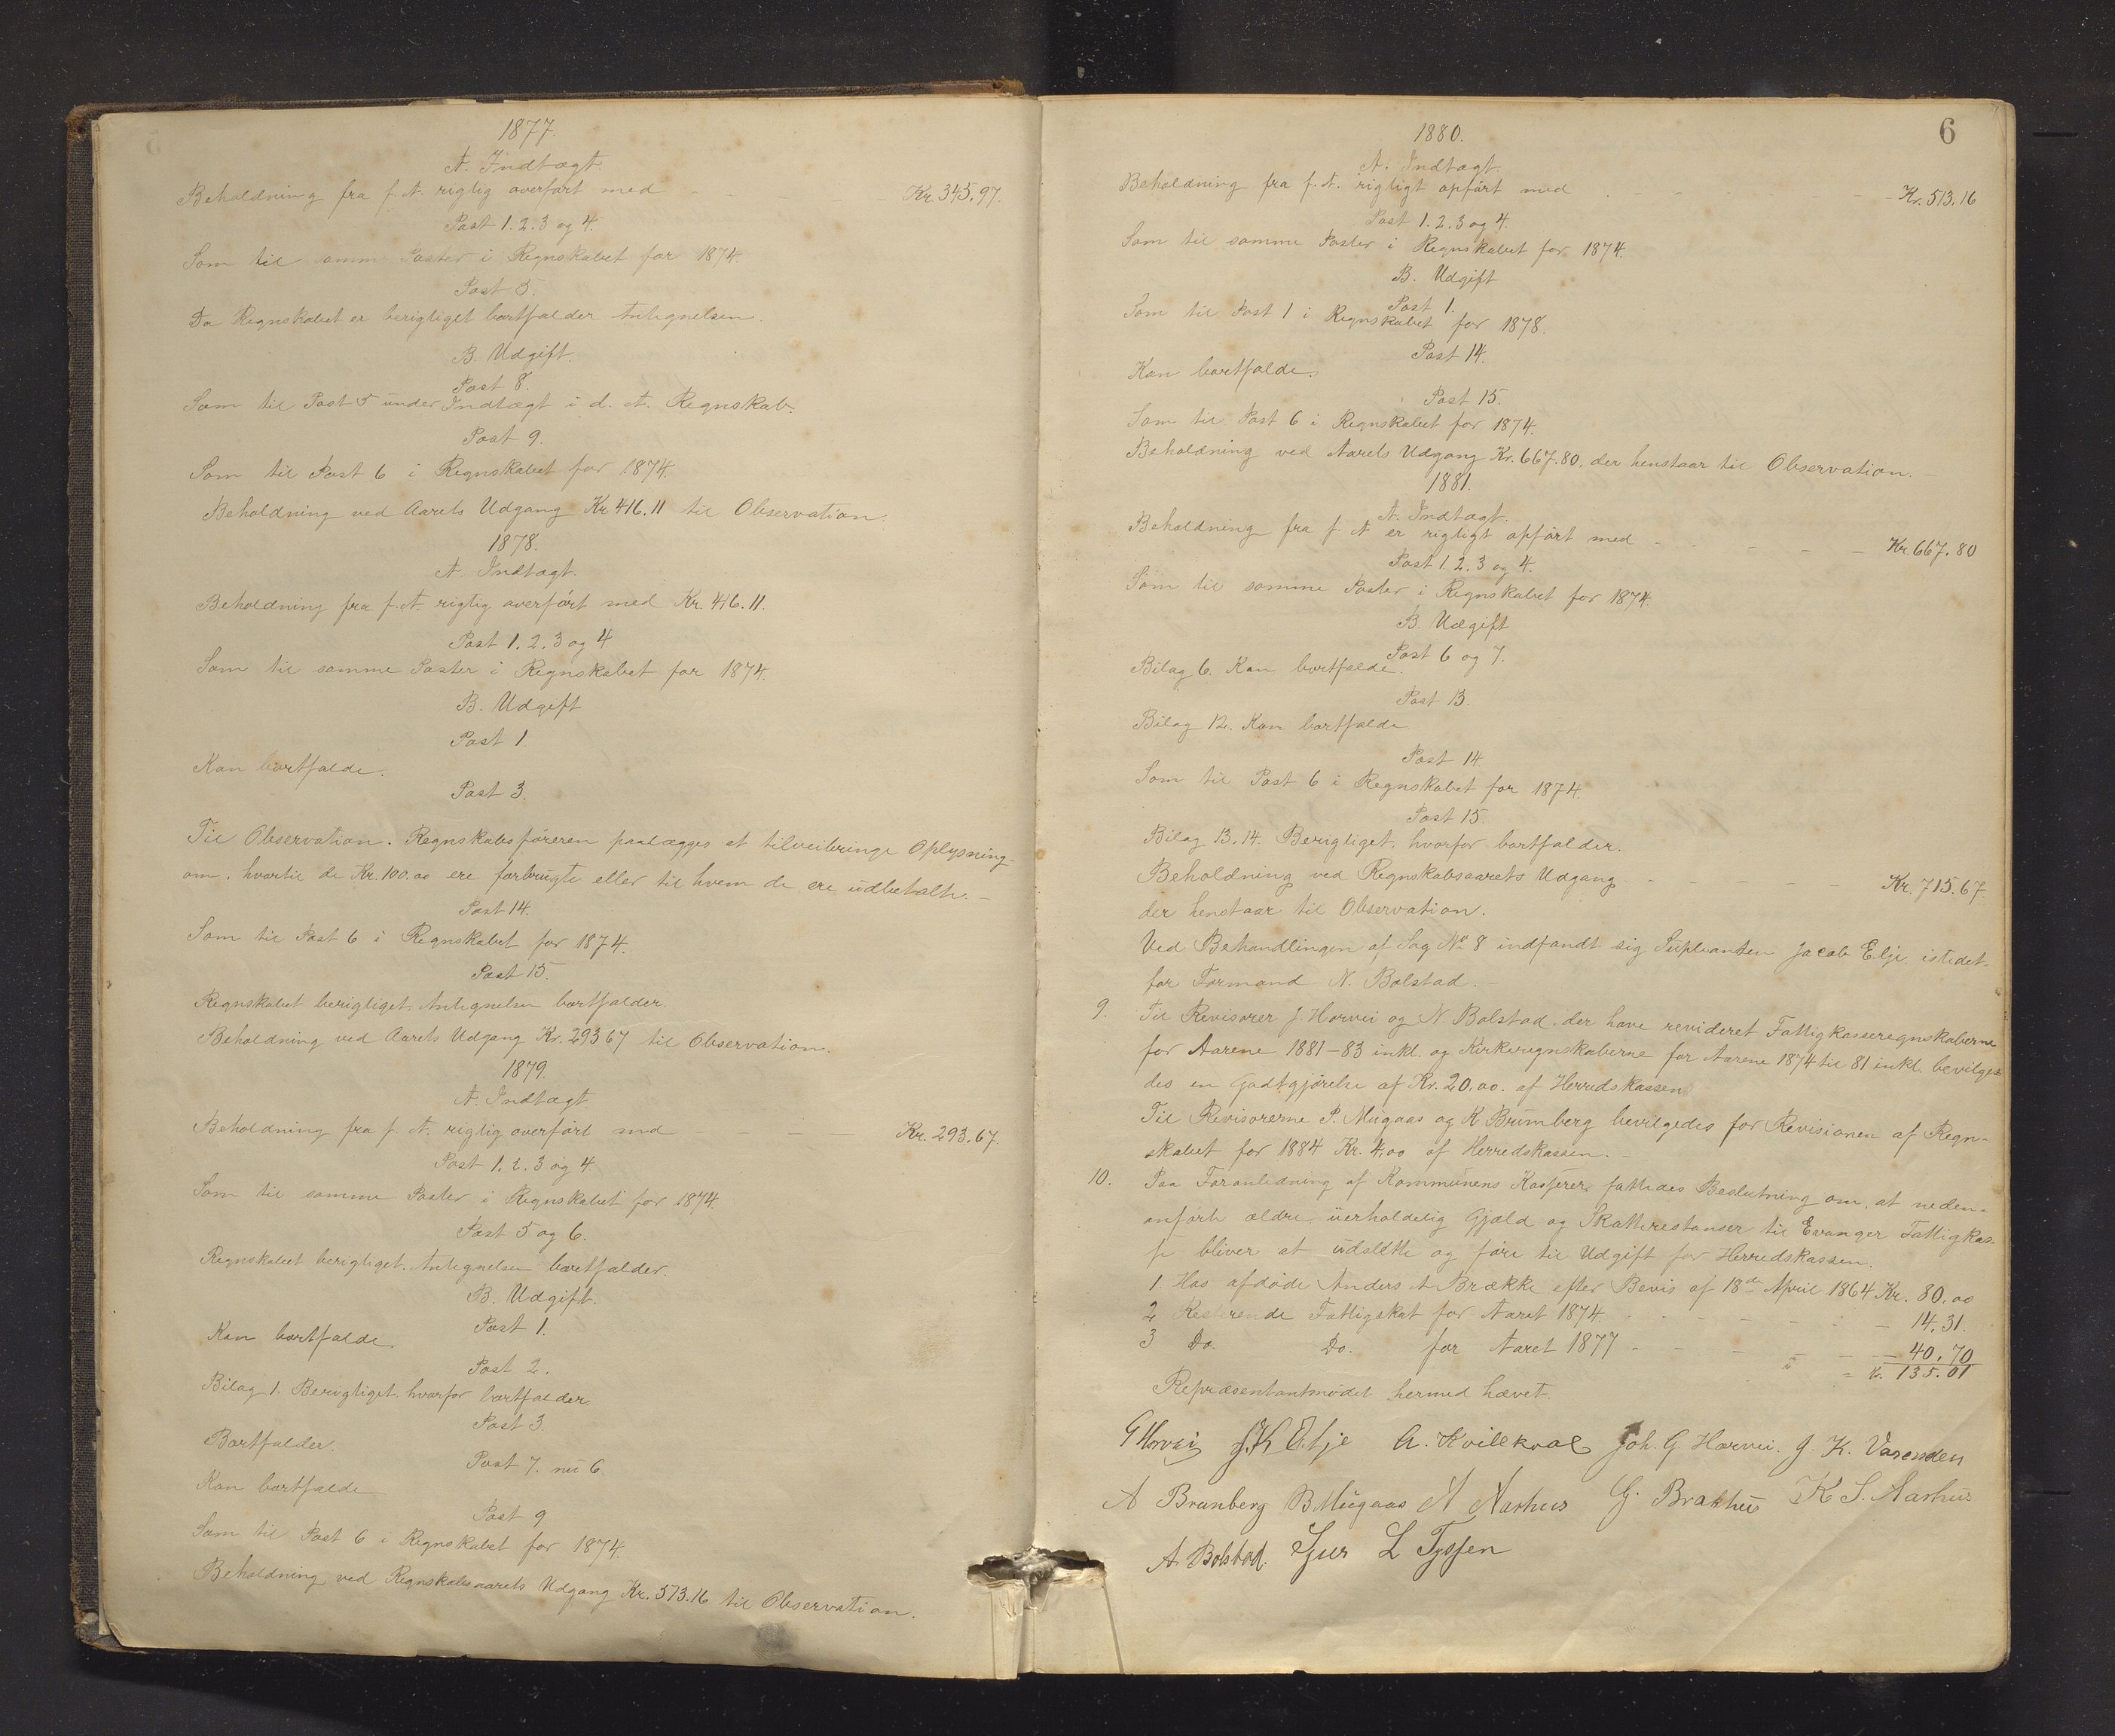 1877.
A. Indtægt.
Beholdning fra f. A. rigtig overført med - - - Kr. 345.97.
Post 1. 2. 3 og 4.
Som til samme Poster i Regnskabet for 1874.
Post 5.
Da Regnskabet er berigtiget bortfalder Antegnelsen.
B. Udgift.
Post 8.
Som til Post 5 under Indtægt i d. A. Regnskab.
Post 9.
Som til Post 6 i Regnskabet for 1874.
Beholdning ved Aarets Udgang Kr 416.11 til Observation.
1878.
A. Indtægt.
Beholdning fra f. A. rigtig overført med Kr 416.11.
Post 1. 2. 3 og 4
Som til samme Poster i Regnskabet for 1874.
B. Udgift
Post 1
Kan bortfalde.
Post 3.
Til Observation. Regnskabsføreren paalægges at tilveibringe Oplysning
om, hvortil de Kr. 100.00 ere forbrugte eller til hvem de ere udbetalte. -
Post 14.
Som til Post 6 i Regnskabet for 1874.
Post 15.
Regnskabet berigtiget. Antegnelsen bortfalder.
Beholdning ved Aarets Udgang Kr. 293 67 til Observation.
1879.
A. Indtægt
Beholdning fra f. A. rigtig overført med - - Kr. 293.67.
Post 1. 2. 3 og 4
Som til samme Poster i Regnskabet for 1874.
Post 5 og 6.
Regnskabet berigtiget. Antegnelsen bortfalder.
B. Udgift.
Post 1.
Kan bortfalde.
Post 2.
Bilag 1. Berigtiget. hvorfor bortfalder
Post 3.
Bortfalder.
Post 7. nu 6.
Kan bortfalde
Post 9
Som til Post 6 i Regnskabet for 1874.
Beholdning ved Regnskabsaarets Udgang Kr. 513.16 til Observation.
6
1880.
A. Indtægt
Beholdning fra f. A. rigtigt opført med - - - Kr. 513.16
Post 1. 2. 3 og 4.
Som til samme Poster i Regnskabet for 1874.
B. Udgift
Post 1.
Som til Post 1 i Regnskabet for 1878.
Post 14.
Kan bortfalde.
Post 15.
Som til Post 6 i Regnskabet for 1874.
Beholdning ved Aarets Udgang Kr. 667.80, der henstaar til Observation. -
1881.
A. Indtægt.
Beholdning fra f. A er rigtigt opført med - - - - - Kr. 667.80
Post 1. 2. 3 og 4.
Som til samme Poster i Regnskabet for 1874.
B. Udgift
Post 6 og 7.
Bilag 6. Kan bortfalde.
Post 13.
Bilag 12. Kan bortfalde
Post 14
Som til Post 6 i Regnskabet for 1874.
Post 15.
Bilag 13. 14. Berigtiget. hvorfor bortfalder.
Beholdning ved Regnskabsaarets Udgang - - - - - Kr. 715.67.
der henstaar til Observation.
Ved Behandlingen af Sag No 8 indfandt sig Supleanten Jacob Elje istedet-
for Formand N. Bolstad. -
9. Til Revisorer J Horvei og N. Bolstad, der have revideret Fattigkasseregnskaberne
for Aarene 1881-83 inkl. og Kirkeregnskaberne for Aarene 1874 til 81 inkl. bevilge-
des en Godtgjørelse af Kr. 20.00. af Herredskassen.
Til Revisorerne P. Mugaas og K Brunberg bevilgedes for Revisionen af Regn-
skabet for 1884 Kr. 4.00 af Herredskassen. -
10. Paa Foranledning af Kommunens Kasserer fattedes Beslutning om, at neden-
anførte ældre uerholdelig Gjæld og Skatterestanser til Evanger Fattigkas-
se bliver at udslette og føre til Udgift for Herredskassen.
1. Hos afdøde Anders A Brække efter Bevis af 18de April 1864 Kr. 80.00
2 Resterende Fattigskat for Aaret 1874. - - - - - 14.31.
3 Do. Do. for Aaret 1877 - - - 40.70
= K. 135.01
Repræsentantmødet hermed hævet.
G Horvei J. K Elje A. Kvilekval Joh. G. Horvei. J. K. Vasenden
A Brunberg B. Mugaas A Aarhus G. Brakhus K S. Aarhus
A. Bolstad. Sjur L Tyssen